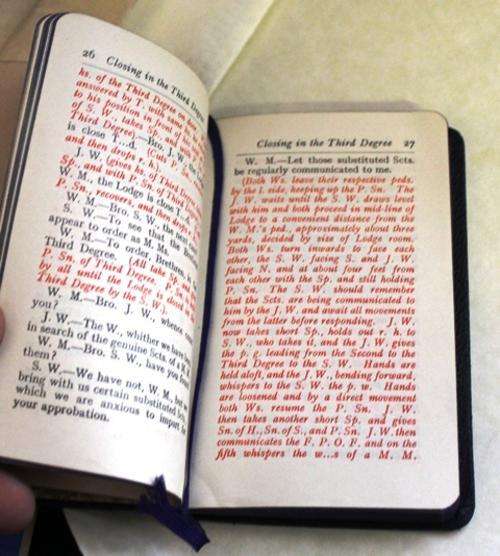 26 Closing in the Third Degree
hs. of the Third Degree on
answered by T. with
to his position in front of
of S. W. takes Sp. and
Third Degree).—Bro. J. W., the
is close T...d. (Cuts
and then drops r. h.)
J. W. (gives hs. of Third Degree
Sp. and with P. Sn. of Third
W. M., the Lodge is close T...d.
P. Sn., recovers, and then drops
W. M.—Bro. S. W., the next
S. W.—To see that the Brethren
appear to order as M. Ms.
W. M.—To order, Brethren, in the
Third Degree. (All take Sp.
P. Sn. of Third Degree.
by all until the Lodge is
Third Degree by the S. W.).
W. M.—Bro. J. W., whence
you?
J. W.—The W., whither we have been
in search of the genuine Scts. of a M. M.
W. M.—Bro. S. W., have you found
them?
S. W.—We have not, W. M., but we
bring with us certain substituted
which we are anxious to impart
your approbation.
Closing in the Third Degree 27
W. M.—Let those substituted Scts.
be regularly communicated to me.
(Both Ws. leave their respective peds.
by the l. side, keeping up the P. Sn. The
J. W. waits until the S. W. draws level
with him and both proceed in mid-line of
Lodge to a convenient distance from the
W. M.'s ped., approximately about three
yards, decided by size of Lodge room.
Both Ws. turn inwards to face each
other, the S. W. facing S. and J. W.
facing N. and at about four feet from
each other with the Sp. and still holding
P. Sn. The S. W. should remember
that the Scts. are being communicated to
him by the J. W. and await all movements
from the latter before responding. J. W.
now takes short Sp., holds out r. h. to
S. W., who takes it, and the J. W. gives
the p. g. leading from the Second to the
Third Degree to the S. W. Hands are
held aloft, and the J. W., bending forward,
whispers to the S. W. the p. w. Hands
are loosened and by a direct movement
both Ws. resume the P. Sn. J. W.
then takes another short Sp. and gives
Sn. of H., Sn. of S., and P. Sn. J. W. then
communicates the F. P. O. F. and on the
fifth whispers the w...s of a M. M.